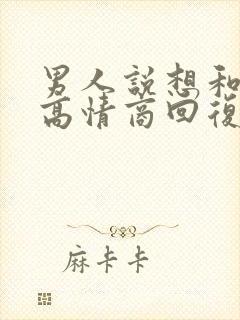 男人說想和
高情商回復
麻卡卡